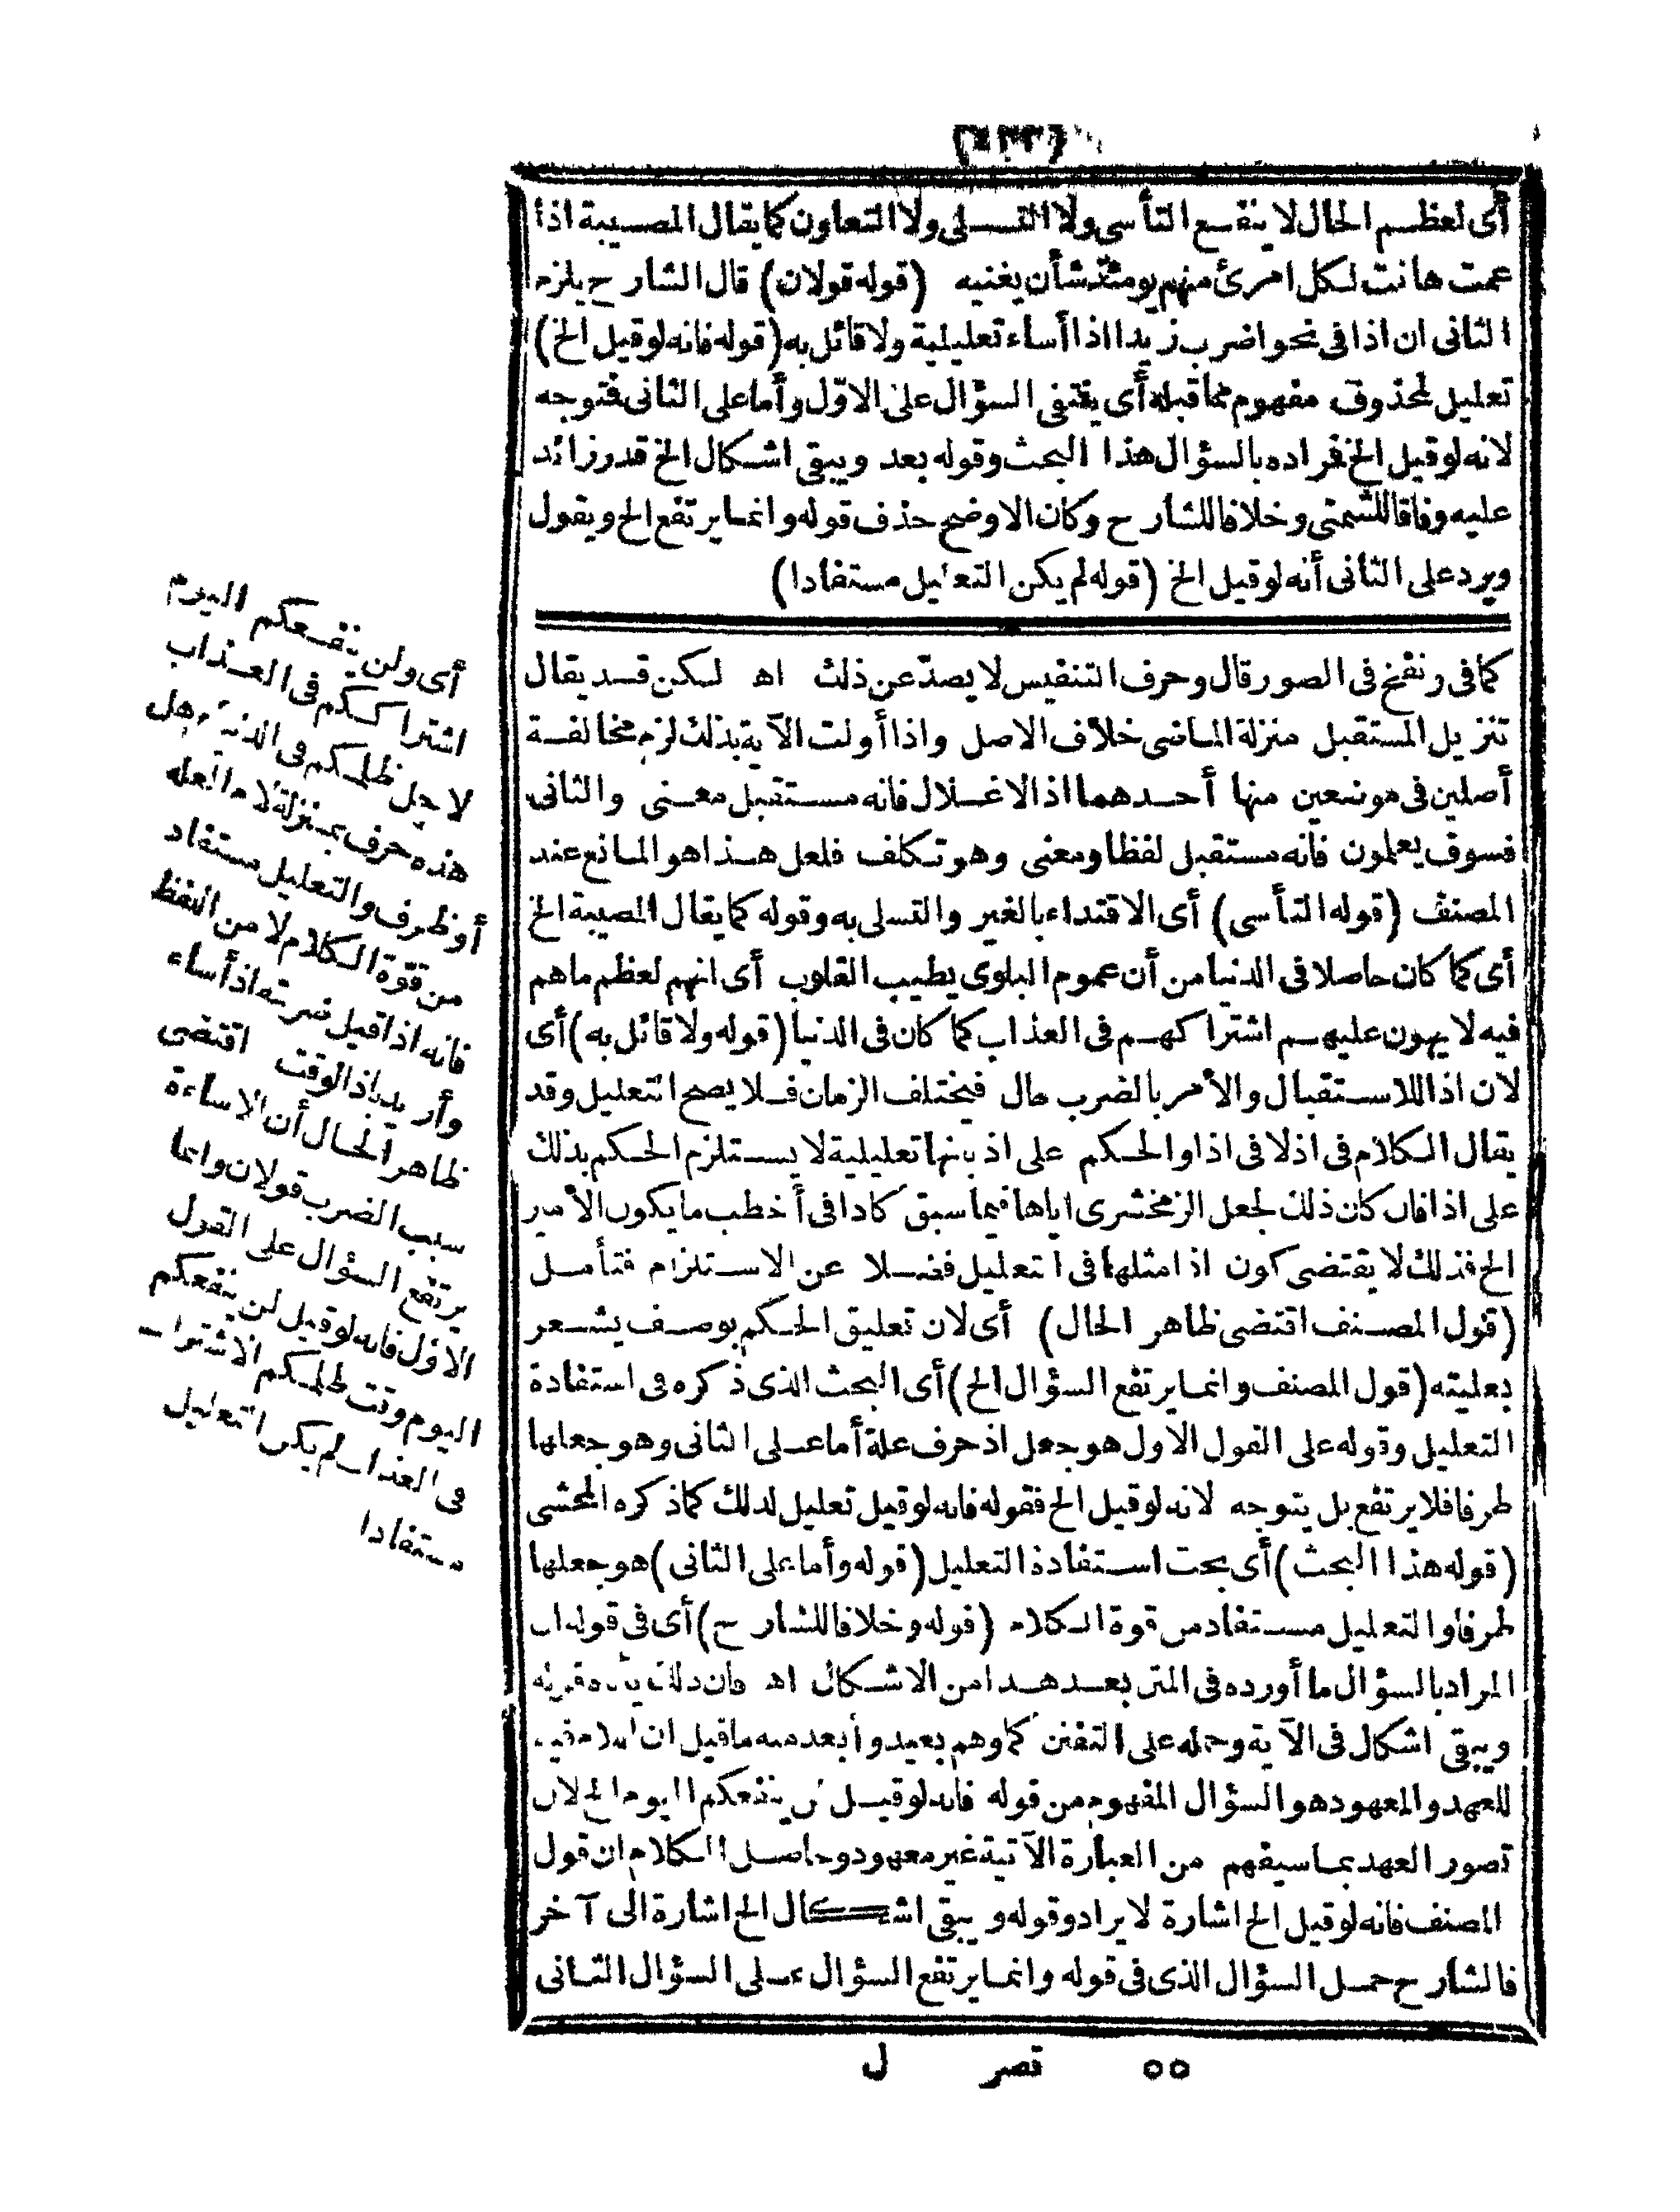 أى لعظم الحال لا ينفع التأسى ولا التسلى ولا التعاون كما يقال المصيبة اذا
عمت هانت لكل امرئ منهم يومئذ شأن يغنيه (قوله قولان) قال الشارح يلزم
الثانى ان اذا فى نحو اضرب زيدا اذا أساء تعليلية ولا قائل به (قوله فانه لو قيل الخ)
تعليل لمحذوف مفهوم مما قبله أى ينتفى السؤال على الاوّل وأما على الثانى فتوجه
لانه لو قيل الخ فراده بالسؤال هذا البحث وقوله بعد ويبقى اشكال الخ قدر زائد
عليه وفاقا للشمنى وخلافا للشارح وكان الاوضح حذف قوله وانما يرتفع الخ ويقول
ويرد على الثانى أنه لو قيل الخ (قوله لم يكن التعليل مستفادا)
كما فى ونفخ فى الصور قال وحرف التنفيس لا يصدّ عن ذلك اه لكن قد يقال
تنزيل المستقبل منزلة الماضى خلاف الاصل واذا أولت الآية بذلك لزم مخالفة
أصلين فى موضعين منها أحدهما اذ الاغلال فانه مستقبل معنى والثانى
فسوف يعلمون فانه مستقبل لفظا ومعنى وهو تكلف فلعل هذا هو المانع عند
المصنف (قوله التأسى) أى الاقتداء بالغير والتسلى به وقوله كما يقال المصيبة الخ
أى كما كان حاصلا فى الدنيا من أن عموم البلوى يطيب القلوب أى انهم لعظم ماهم
فيه لا يهون عليهم اشتراكهم فى العذاب كما كان فى الدنيا (قوله ولا قائل به) أى
لان اذا للاستقبال والأمر بالضرب حال فيختلف الزمان فلا يصح التعليل وقد
يقال الكلام فى اذ لا فى اذا والحكم على اذ بأنها تعليلية لا يستلزم الحكم بذلك
على اذا فان كان ذلك لجعل الزمخشرى اياها فيما سبق كاذا فى أخطب ما يكون الأمير
الخ فذلك لا يقتضى كون اذا مثلها فى التعليل فضلا عن الاستلزام فتأمل
(قول المصنف اقتضى ظاهر الحال) أى لان تعليق الحكم بوصف يشعر
بعليته (قول المصنف وانما يرتفع السؤال الخ) أى البحث الذى ذكره فى استفادة
التعليل وقوله على القول الاول هو جعل اذ حرف علة أما على الثانى وهو جعلها
ظرفا فلا يرتفع بل يتوجه لانه لو قيل الخ فقوله فانه لو قيل تعليل لذلك كما ذكره المحشى
(قوله هذا البحث) أى بحث استفادة التعليل (قوله وأما على الثانى) هو جعلها
ظرفا والتعليل مستفاد من قوة الكلام (قوله وخلافا للشارح) أى فى قوله ان
المراد بالسؤال ما أورده فى المتن بعد هذا من الاشكال اه فان ذلك قوله
ويبقى اشكال فى الآية وحمله على التفنن كما وهم بعيد وأبعد منه ما قيل ان اللام فيه
للعهد والمعهود هو السؤال المفهوم من قوله فانه لو قيل لن ينفعكم اليوم الخ لان
تصور العهد بما سيفهم من العبارة الآتية غير معهود وحاصل الكلام ان قول
المصنف فانه لو قيل الخ اشارة لايراد وقوله ويبقى اشكال الخ اشارة الى آخر
فالشارح حمل السؤال الذى فى قوله وانما يرتفع السؤال على السؤال الثانى
٥٥ قصر ل
أى ولن ينفعكم اليوم
اشتراككم فى العذاب
لاجل ظلمكم فى الدنيا وهل
هذه حرف بمنزلة لام العلة
أو ظرف والتعليل مستفاد
من قوّة الكلام لا من اللفظ
فانه اذا قيل ضربته اذ أساء
وأريد باذ الوقت اقتضى
ظاهر الحال أن الاساءة
سبب الضرب قولان وانما
يرتفع السؤال على القول
الاوّل فانه لو قيل لن ينفعكم
اليوم وقت ظلمكم الاشتراك
فى العذاب لم يكن التعليل
مستفادا